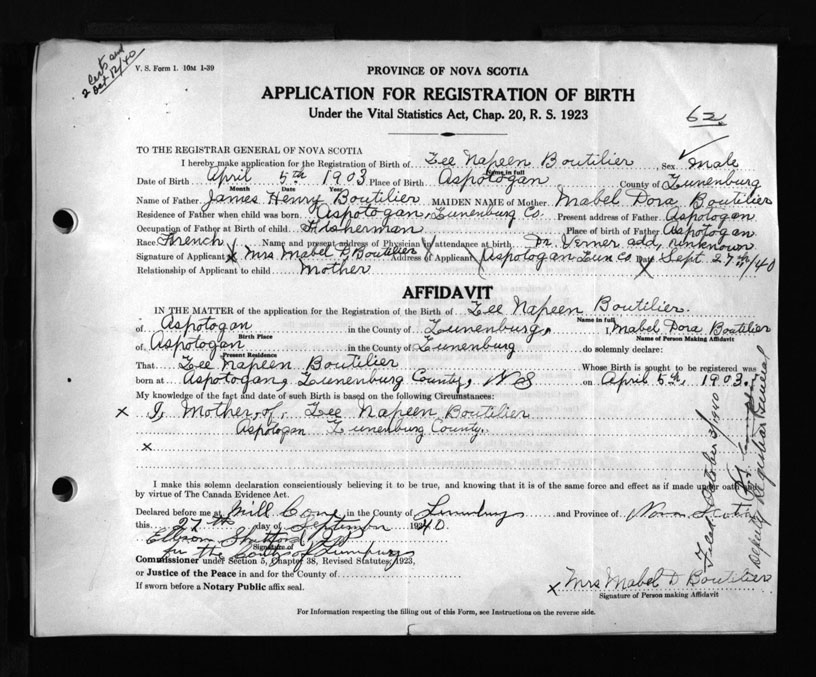 2 Certs and
Oct 12/40
V. S. Form 1. 10M 1-39
PROVINCE OF NOVA SCOTIA
APPLICATION FOR REGISTRATION OF BIRTH
Under the Vital Statistics Act, Chap. 20, R. S. 1923
62
TO THE REGISTRAR GENERAL OF NOVA SCOTIA
I hereby make application for the Registration of Birth of Lee Napeen Boutilier Sex Male
Name in full
Date of Birth April 5th 1903 Place of Birth Aspotogan County of Lunenburg
Month Date Year
Name of Father James Henry Boutilier MAIDEN NAME of Mother Mabel Dora Boutilier
Residence of Father when child was born. Aspotogan, Lunenburg Co. Present address of Father Aspotogan
Occupation of Father at Birth of child Fisherman Place of birth of Father Aspotogan
Race French Name and present address of Physician in attendance at birth Dr. add, unknown
Signature of Applicant x Mrs Mabel D Boutilier Address of Applicant Aspotogan Lun Co Date Sept 27th/40
Relationship of Applicant to child Mother
AFFIDAVIT
IN THE MATTER of the application for Registration of the Birth of Lee Napeen Boutilier.
Name in full
of Aspotogan in the County of Lunenburg, I, Mabel Dora Boutilier
Birth Place Name of Person Making Affidavit
of Aspotogan in the County of Lunenburg do solemnly declare:
Present Residence
That Lee Napeen Boutilier Whose Birth is sought to be registered was
born at Aspotogan, Lunenburg County, NS on April 5th, 1903.
My knowledge of the fact and date of such Birth is based on the following Circumstances:
x I, Mother, of, Lee Napeen Boutilier
Aspotogan Lunenburg County.
x
I make this solemn declaration conscientiously believing it to be true, and knowing that it is of the same force and effect as if made under oath and
by virtue of The Canada Evidence Act.
Declared before me at Mill Cove in the County of Lunenburg and Province of Nova Scotia
this 27th day of September 1940
Signature of
for the County of Lunenburg
Commissioner under Section 5, Chapter 38, Revised Statutes, 1923,
or Justice of the Peace in and for the County of
If sworn before a Notary Public affix seal.
x Mrs Mabel D Boutilier
Signature of Person making Affidavit
For Information respecting the filling out of this Form, see Instructions on the reverse side.
Filed October 3/1940
Deputy Registrar General